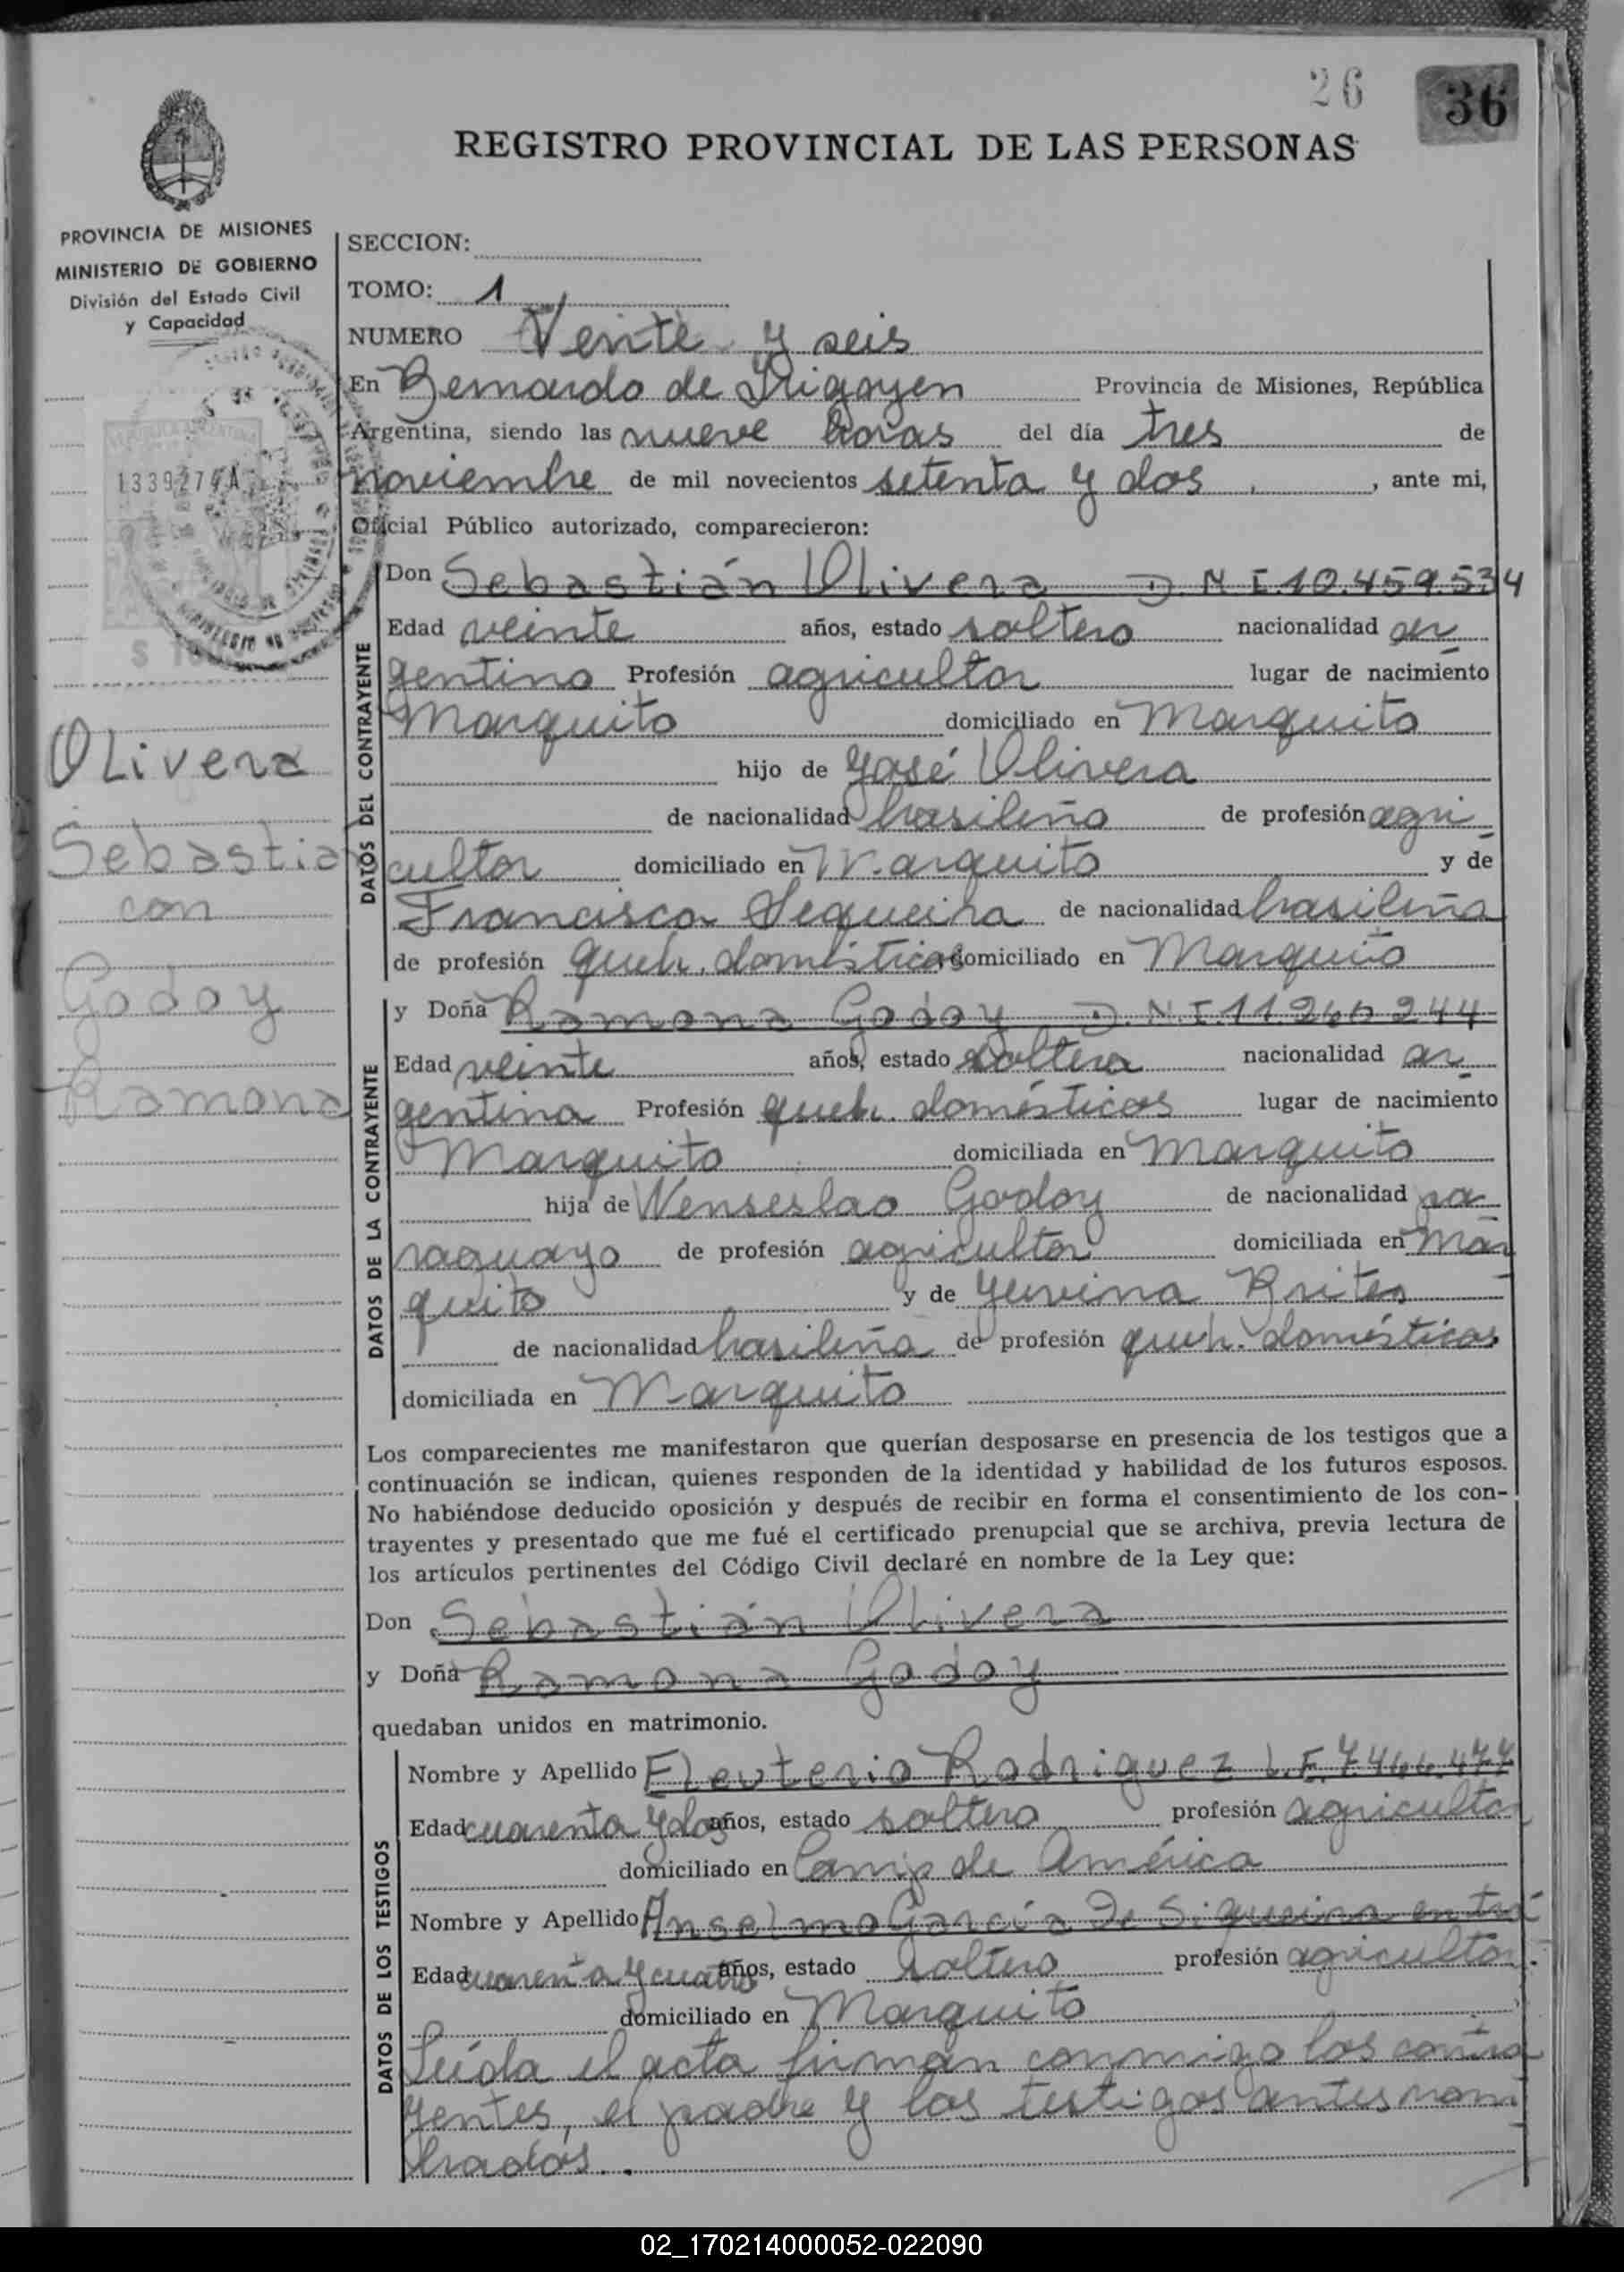 26
36
REGISTRO PROVINCIAL DE LAS PERSONAS
PROVINCIA DE MISIONES
MINISTERIO DE GOBIERNO
División del Estado Civil
y Capacidad
1339276 A
SECCION:
TOMO: 1
NUMERO Veinte y seis
En Bernardo de Irigoyen Provincia de Misiones, República
Argentina, siendo las nueve horas del día tres de
noviembre de mil novecientos setenta y dos, ante mi,
Oficial Público autorizado, comparecieron:
DATOS DEL CONTRAYENTE
Don Sebastián Olivera D.N.I.10.459.534
Edad veinte años, estado soltero nacionalidad ar
gentino Profesión agricultor lugar de nacimiento
Marquito domiciliado en Marquito
hijo de José Olivera
de nacionalidad brasileño de profesión agri
cultor domiciliado en Marquito y de
Francisca Sequeira de nacionalidad brasileña
de profesión queh. domésticos domiciliado en Marquito
Olivera
Sebastián
con
Godoy
Ramona
DATOS DE LA CONTRAYENTE
y Doña Ramona Godoy D.N.I.11.260.244
Edad veinte años, estado soltera nacionalidad ar
gentina Profesión queh. domésticos lugar de nacimiento
Marquito domiciliada en Marquito
hija de Wenseslao Godoy de nacionalidad pa
raguayo de profesión agricultor domiciliada en Mar
quito y de Jurvina Brites
de nacionalidad brasileña de profesión queh. domésticos
domiciliada en Marquito
Los comparecientes me manifestaron que querían desposarse en presencia de los testigos que a
continuación se indican, quienes responden de la identidad y habilidad de los futuros esposos.
No habiéndose deducido oposición y después de recibir en forma el consentimiento de los con-
trayentes y presentado que me fué el certificado prenupcial que se archiva, previa lectura de
los artículos pertinentes del Código Civil declaré en nombre de la Ley que:
Don Sebastián Olivera
y Doña Ramona Godoy
quedaban unidos en matrimonio.
DATOS DE LOS TESTIGOS
Nombre y Apellido Eleuterio Rodriguez L.E.7.466.477
Edad cuarenta y dos años, estado soltero profesión agricultor
domiciliado en Camp de América
Nombre y Apellido Anselmo García De Siqueira
Edad cuarenta y cuatro años, estado soltero profesión agricultor
domiciliado en Marquito
Leída el acta firman conmigo los contra
yentes, el padre y los testigos antes nom
brados.
02_170214000052-022090